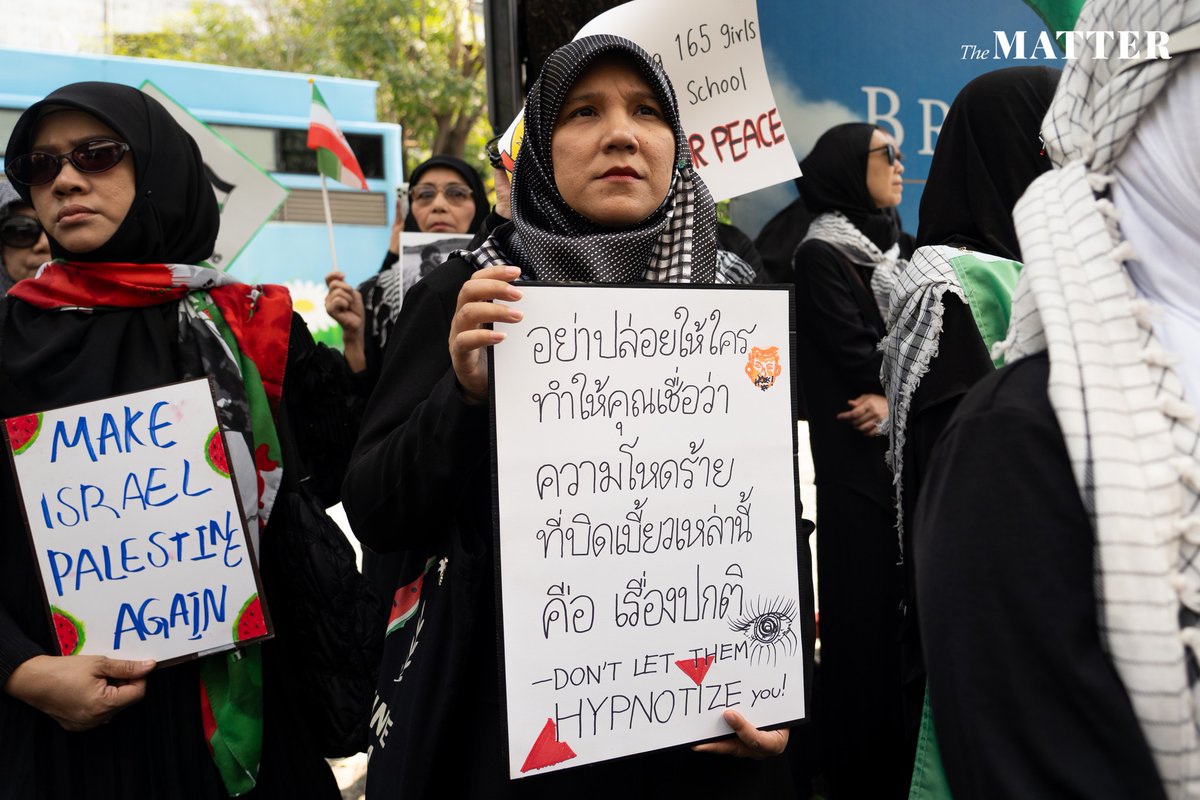 The MATTER
165 girls
School
PEACE
BR
อย่าปล่อยให้ใคร
ทำให้คุณเชื่อว่า
ความโหดร้าย
ที่บิดเบี้ยวเหล่านี้
คือ เรื่องปกติ
-DON'T LET THEM
HYPNOTIZE you!
MAKE
ISRAEL
PALESTINE
AGAIN